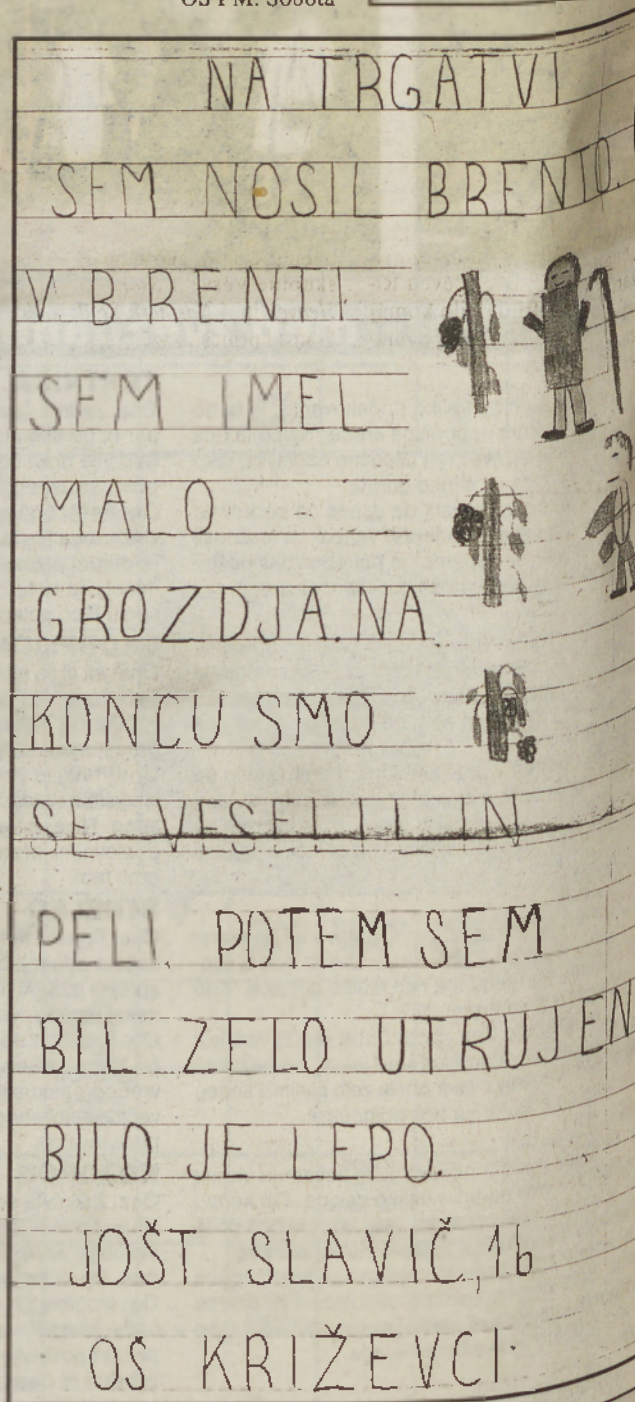 OŠ I M. Sobota
NA TRGATVI
SEM NOSIL BRENTO.
V BRENTI
SEM IMEL
MALO
GROZDJA. NA
KONCU SMO
SE VESELILI IN
PELI. POTEM SEM
BIL ZELO UTRUJEN
BILO JE LEPO.
JOŠT SLAVIČ, 1b
OŠ KRIŽEVCI